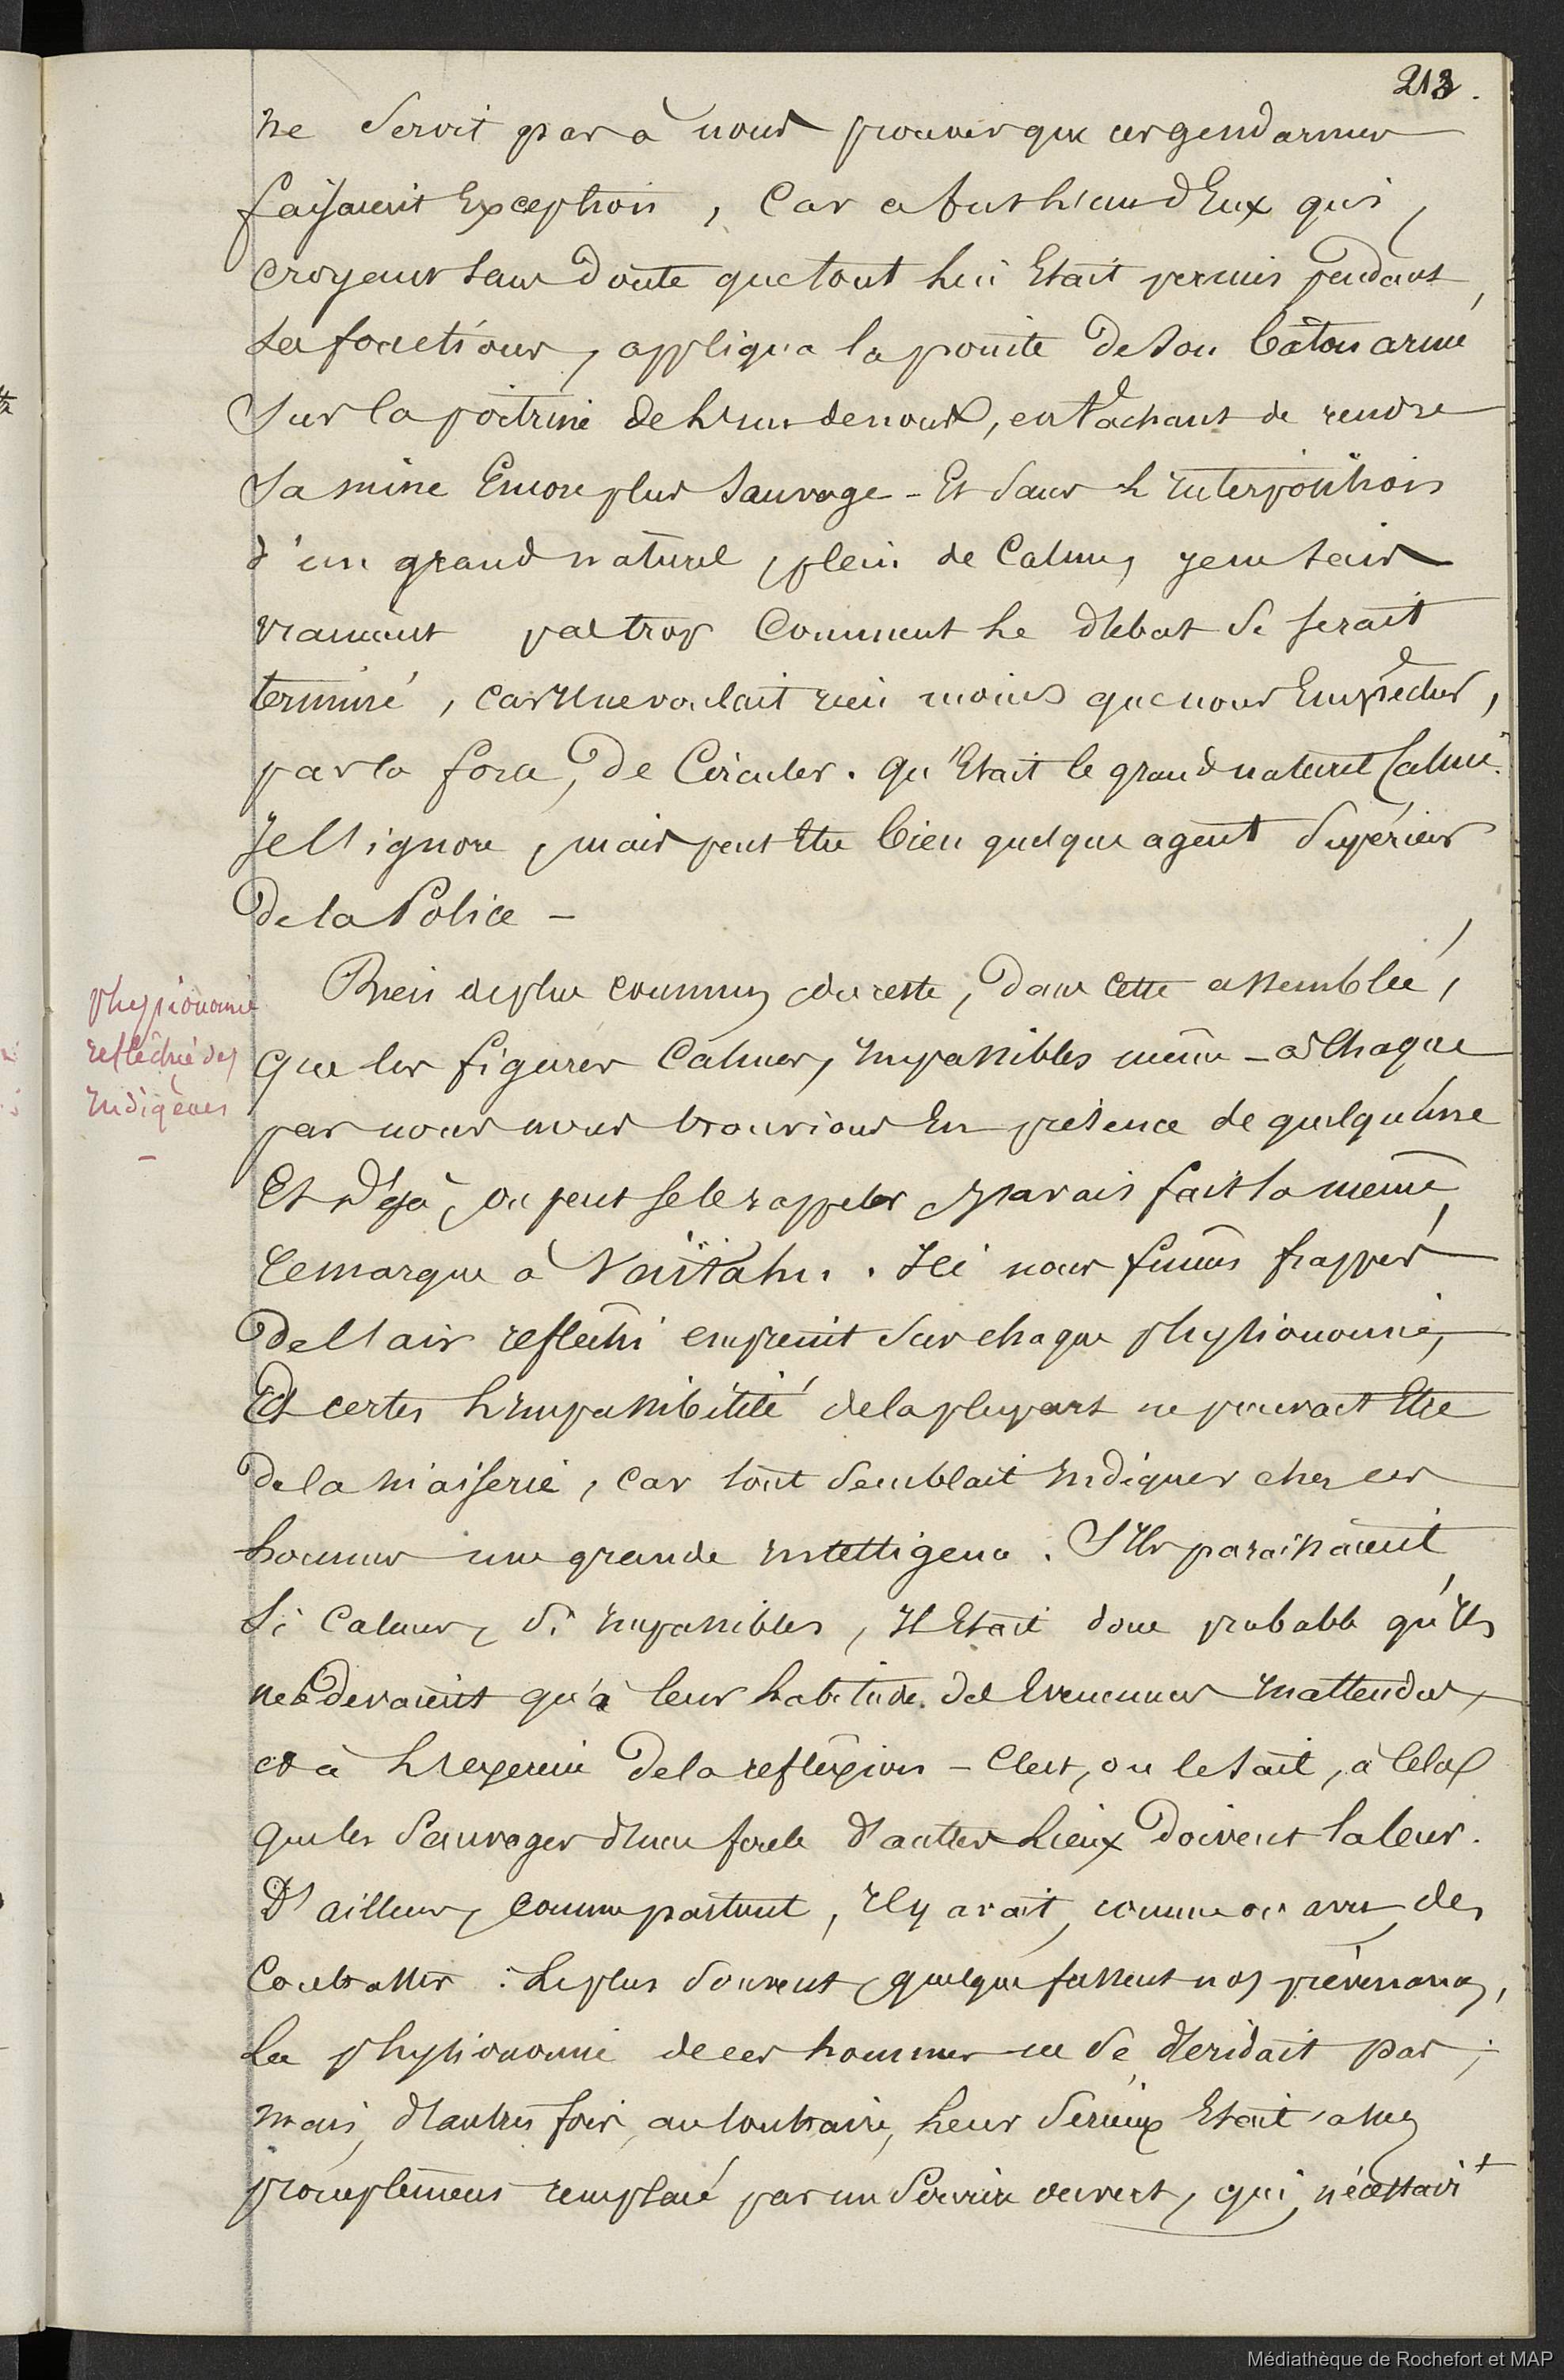 213.
ne servit pas à nous prouver que ces gendarmes
faisaient Exception, Car ce fut l'un d'Eux qui,
croyant sans doute que tout lui Etait permis pendant
ses fonctions, appliqua la pointe de son bâton armé
sur la poitrine de l'un de nous, en tâchant de rendre
sa mine Encore plus sauvage - Et sans l'interposition
d'un grand naturel, plein de Calme, je ne sais
vraiment pas trop Comment le débat se serait
terminé, car Il ne voulait rien moins que nous Empêcher,
par la force, de Circuler. Qu'Etait le grand naturel Calme.
Je l'ignore, mais peut Etre bien quelque agent supérieur
de la Police -
Rien de plus commun, du reste, dans cette assemblée,
que les figures Calmes, Impassibles même - à Chaque
pas nous nous trouvions En présence de quelqu'une
Et déjà, on peut se le rappeler, j'avais fait la même
remarque à Vaïtahu. Ici nous fûmes frappés
de l'air réfléchi empreint sur chaque physionomie,
Et certes l'Impassibilité de la plupart ne pouvait Etre
de la niaiserie, Car tout semblait Indiquer chez ces
hommes une grande Intelligence. S'Ils paraissaient
si Calmes, si Impassibles, Il Etait donc probable qu'Ils
ne le devaient qu'à leur habitude des Evenemens Inattendus,
et à l'exercice de la réflexion - C'est, on le sait, à Cela
que les Sauvages d'une foule d'autres lieux doivent la leur.
D'ailleurs, comme partout, Il y avait, comme on a vu, des
Contrastes : le plus souvent, quelque fussent nos prévenances,
la physionomie de ces hommes ne se déridait pas ;
mais, d'autres fois, au Contraire, leur sérieux Etait assez
promptement remplacé par un Sourire ouvert, qui, nécessair+
physionomie
reflèchie des
Indigènes
-
Médiathèque de Rochefort et MAP